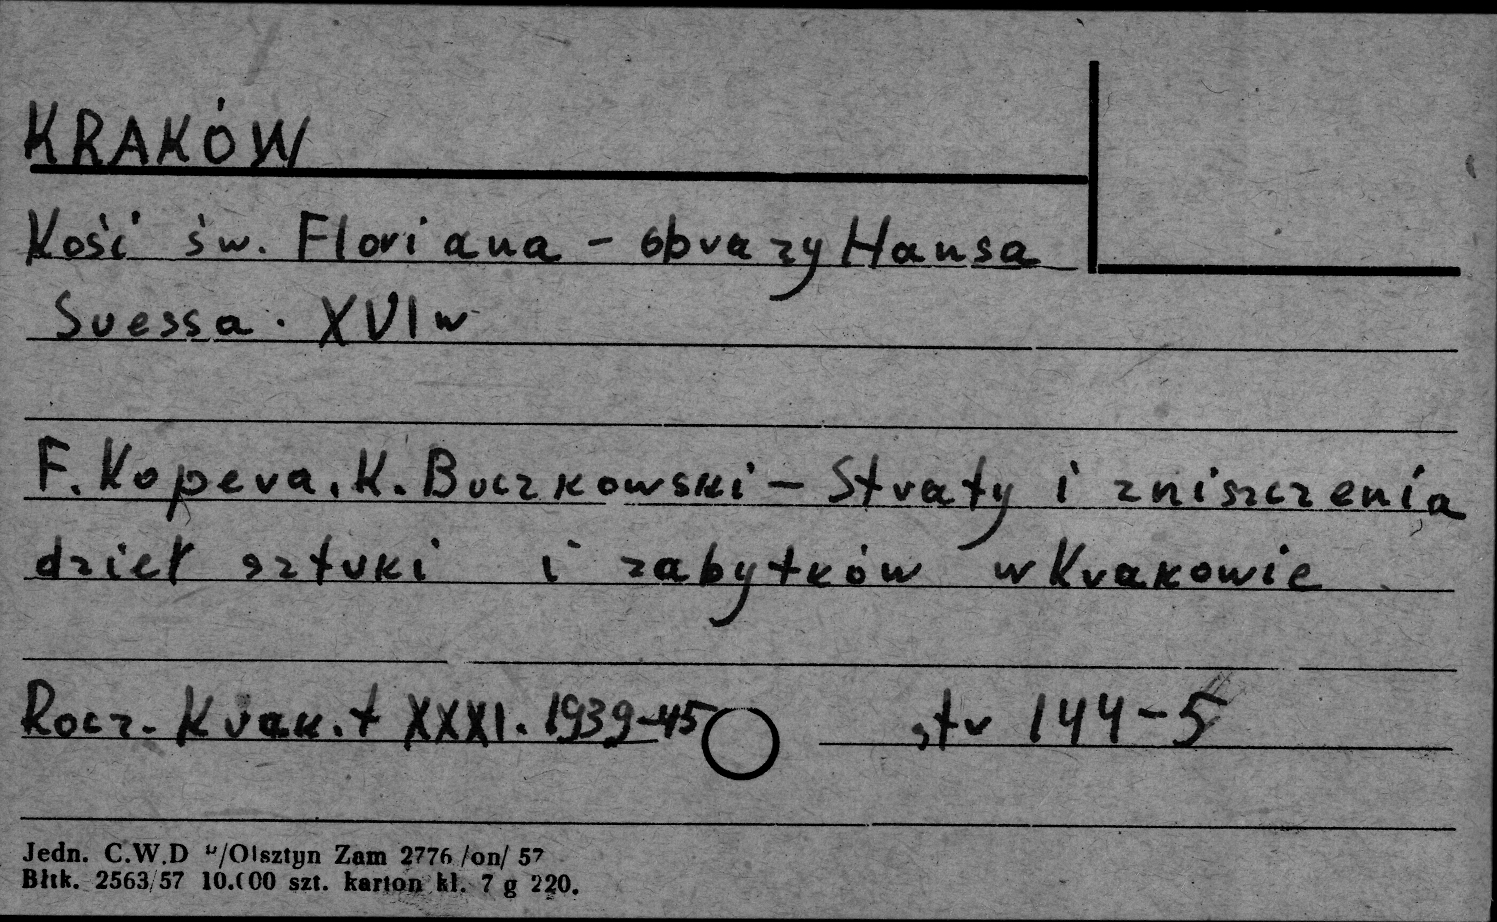 KRAKÓW
Kość św. Floriana - obrazy Hansa
Suessa. XVI w
F. Kopera, K. Buczkowski - Straty i zniszczenia
dzieł sztuki i zabytków w Krakowie
Rocz. Krak. t XXXI. 1939-45 str 144-5
Jedn. C.W.D /Olsztyn Zam 2776 /on/ 57
Błtk. 2563/57 10.000 szt. karton kl. 7 g 220.